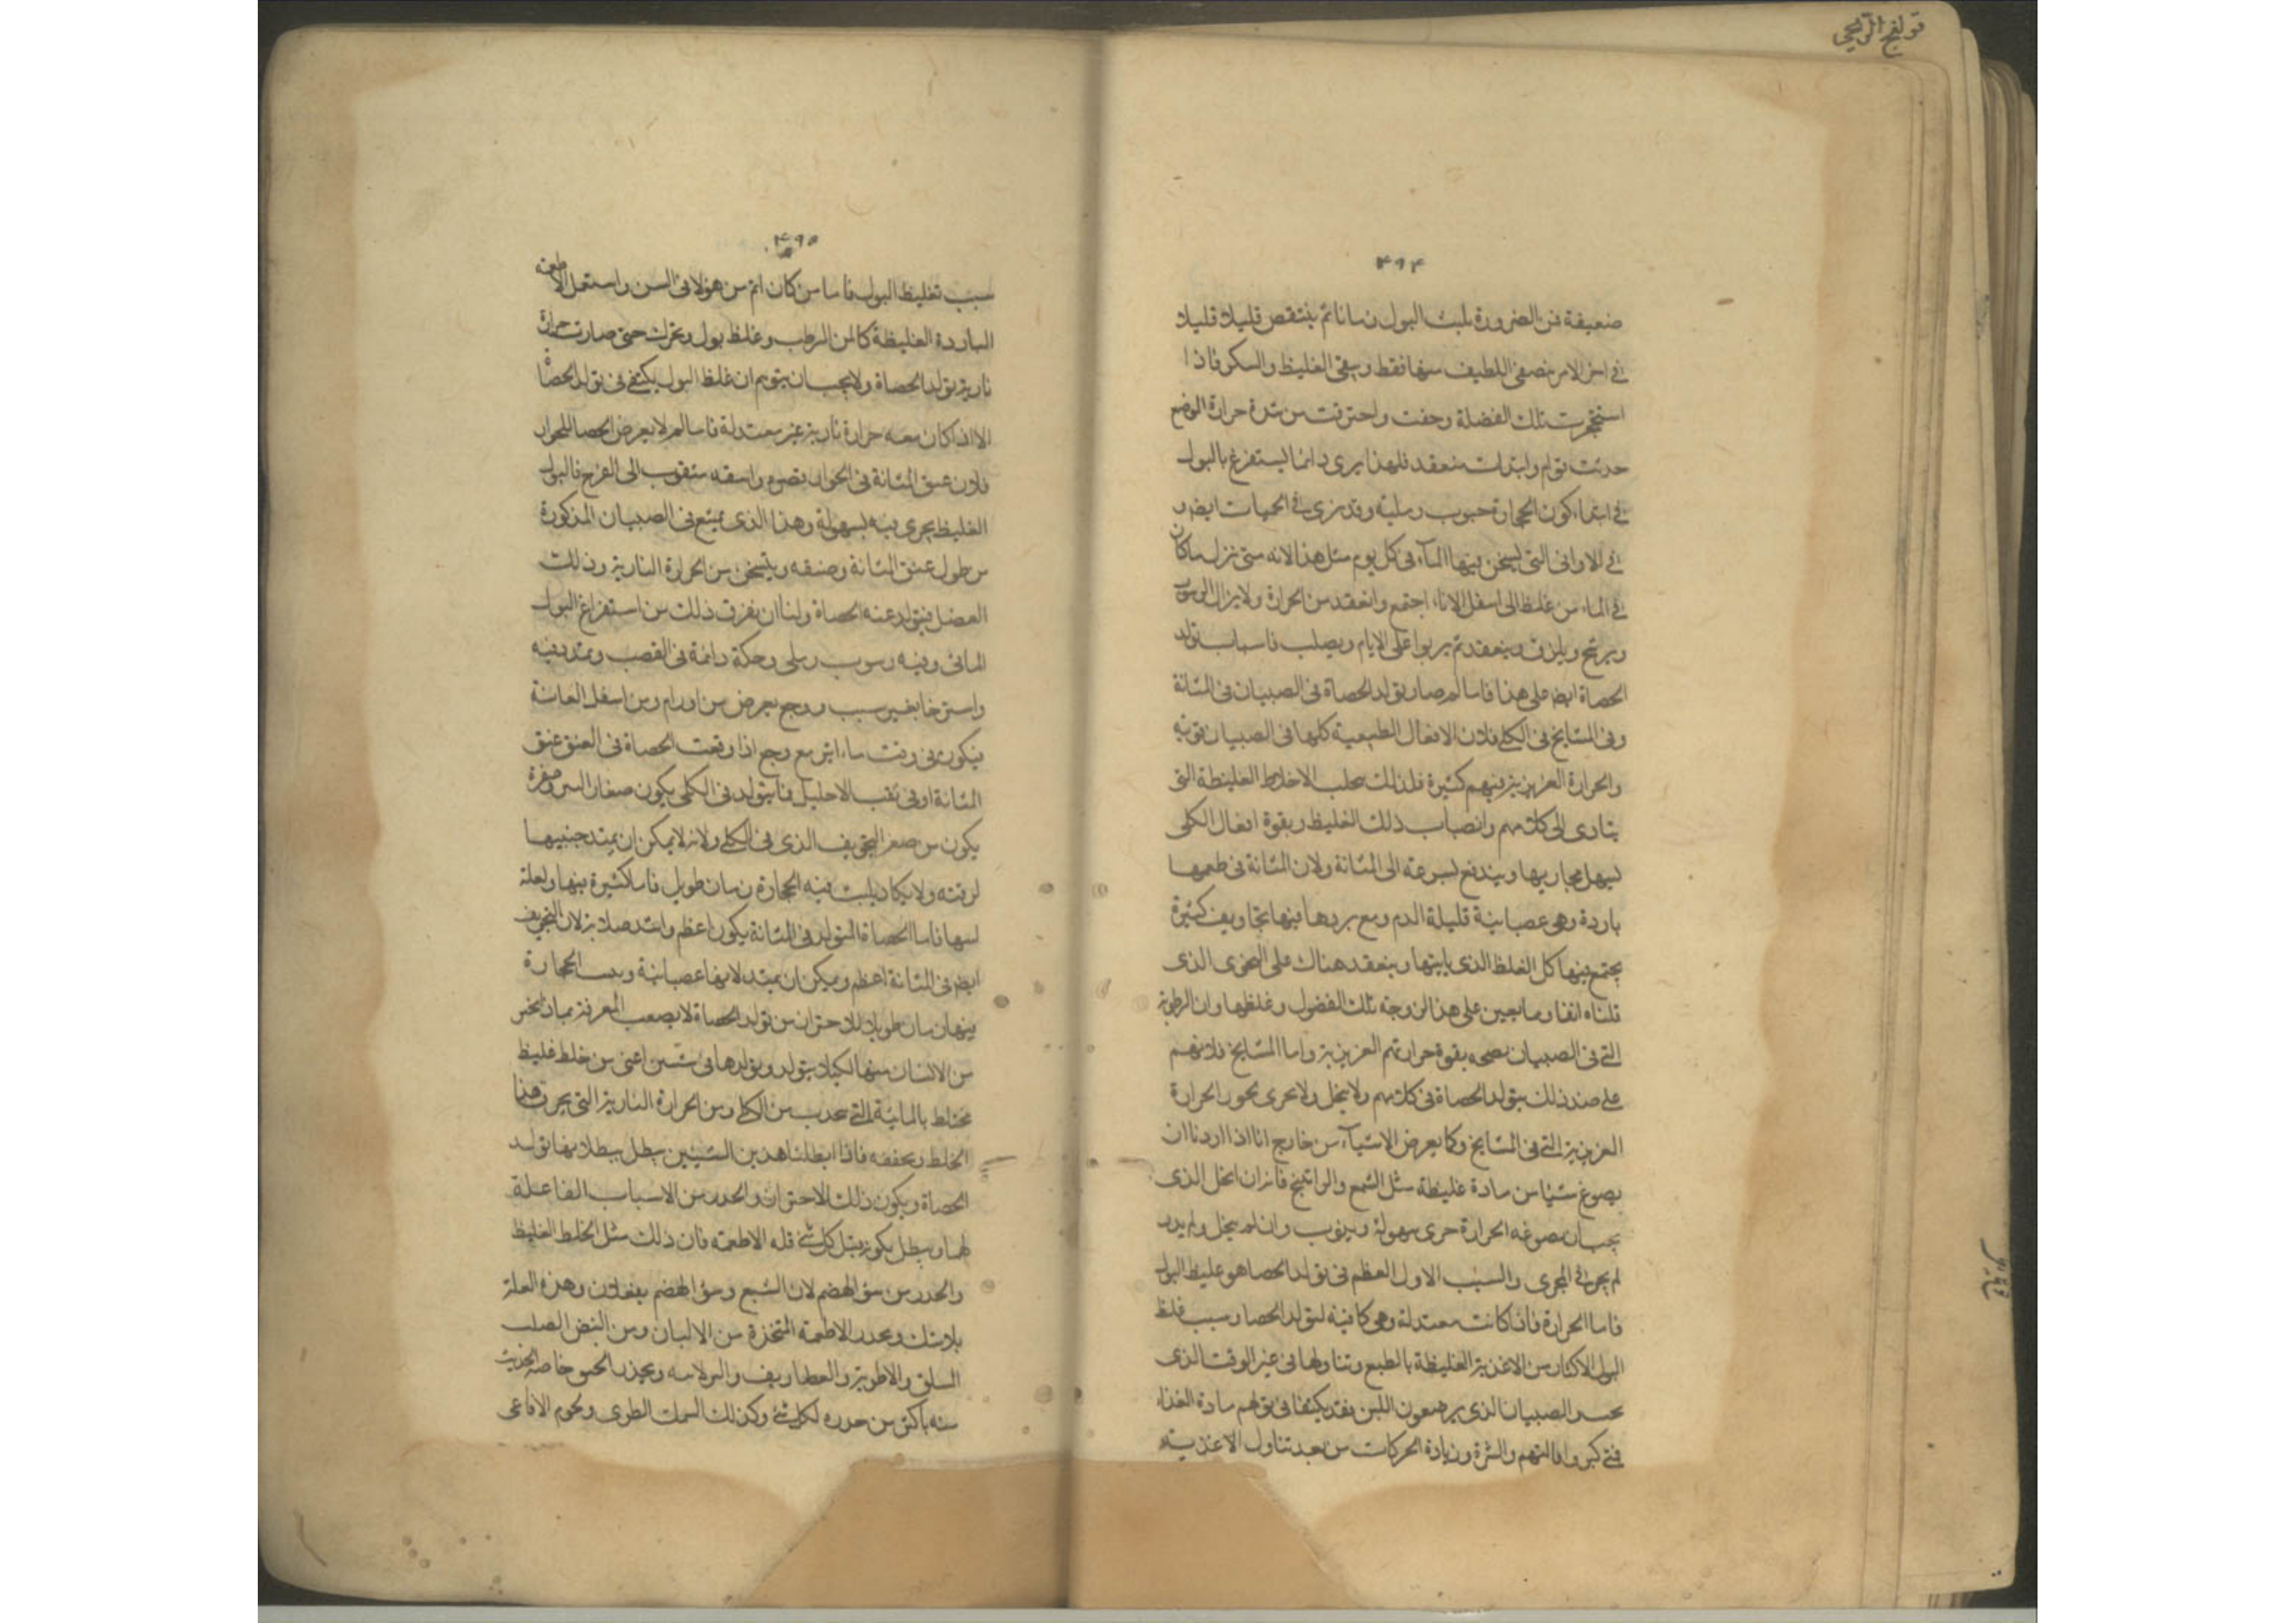 قولنج الريحي
۴۹۴
ضعيفة فن الضرورة يلبث البول زمانا ثم ينتقص قليلا قليلا
في اخر الامر يتصفى اللطيف منها فقط ويبقى الغليظ والسكر فاذا
استحجرت تلك الفضلة وجفت واحترقت من شدة حرارة الوضع
حدثت منعقد فلهذا يرى دائما ليستفرغ بالبول
في ابتداء كون الحجارة حبوب رملية وقد نرى في الحميات ايضا و
في الاواني التي يسخن فيها الماء في كل يوم مثل هذا لانه متى نزل ما كان
في الماء من غلظ الى اسفل الاناء اجتمع وانعقد من الحرارة ولا يزال
ويلزق وينعقد ثم يربوا على الايام ويصلب فاسباب تولد
الحصاة ايضا على هذا فاما لم صار تولد الحصاة في الصبيان في المثانة
وفي المشايخ في الكلى فلان الافعال الطبيعية كلها في الصبيان قوية
والحرارة الغريزية فيهم كثيرة فلذلك الاخلاط الغليظة التي
يتادى الى كلاهم وانصباب ذلك الغليظ وبقوة افعال الكلى
ليسهل مجاريها ويندفع بسرعة الى المثانة ولان المثانة في طبعها
باردة وهي عصبانية قليلة الدم ومع بردها فيها تجاويف كثيرة
يجتمع فيها كل الغلظ الذي ياتيها وينعقد هناك على النحوى الذى
قلناه انفا ومما يعين على هذا لزوجة تلك الفضول وغلظها وان الرطوبة
التي في الصبيان بقوة حرارتهم الغريزية واما المشايخ فلانهم
على ضد ذلك يتولد الحصاة في كلاهم ولا ينحل ولا يجرى الحرارة
الغريزية التي في المشايخ وكما يعرض الاشياء من خارج انا اذا اردنا ان
يصوغ شيئا من مادة غليظة مثل الشمع والراتينج فانه ان انحل الذى
يجب ان الحرارة جرى بسهولة ويذوب وان لم ينحل ولم
لم يجر في المجرى والسبب الاول العظم في تولد الحصا هو غليظ البول
فاما الحرارة فاذا كانت معتدلة وهي كافية لتولد الحصا وسبب غلظ
البول الاكثار من الاغذية الغليظة بالطبع وتناولها في غير الوقت الذى
الصبيان الذى يرضعون اللبن فقد يكتفا مادة الغذاء
والشرة وزيادة الحركات من بعد تناول الاغذية
۴۹۵
سبب تغليظ البول فاما من كان اتم من هؤلاء في السن واستعمل الاطعمة
الباردة الغليظة كالبن الرطب وغلظ بول حتى صارت حرارة
نارية تولد الحصاة ولا يجب ان يتوهم ان غلظ البول يكتفي في تولد الحصاة
الا اذا كان معه حرارة نارية غير معتدلة فاما لم لا يعرض الحصا للجوار
فلان عنق المثانة في الجوار مثقوب الى الفرج فالبول
الغليظ يجرى فيه بسهولة وهذا الذى يمتنع في الصبيان المذكورة
من طول عنق المثانة وضيقه ويسخن من الحرارة النارية وذلك
الفضل فيتولد عنه الحصاة ولنا ان نعرف ذلك من استفراغ البول
المائي وفيه رسوب رملى وحكة دائمة في القضب وتمدد فيه
واسترخا بغير سبب ووجع يعرض من اورام ومن اسفل العانة
فيكون في وقت ما مع وجع اذا وقعت الحصاة في العنق عنق
المثانة او في ثقب الاحليل فما يتولد في الكلى يكون صغار
يكون من صغر التجويف الذى في الكلى ولانه لا يمكن ان يمتد جنبيها
لرقته ولا يكاد يلبث فيه الحجارة زمان طويل
فاما الحصاة المتولد في المثانة يكون اعظم واشد صلابة لان التجويف
ايضا في المثانة اعظم ويمكن ان يمتد لانها عصبانية الحجارة
فيها زمان طويلا للاحتراز من تولد الحصاة لا يصعب المعرفة
من الانسان منها لكيلا يتولد وتولدها في شيئين اعنى من خلط غليظ
مختلط بالمائية التي من الكلى ومن الحرارة النارية التي يحرق هذا
الخلط ويجففه فاذا ابطلنا هذين الشيئين يبطل ببطلانهما تولد
الحصاة ويكون ذلك الاحتراز والحذر من الاسباب الفاعلة
لهما ويبطل كل شئ قلة الاطعمة فان ذلك مثل الخلط الغليظ
والحذر من سؤ الهضم لان الشبع وسؤ الهضم يفعلان وهذه العلة
بلا شك ويحذر الاطعمة المتخذة من الالبان ومن البيض الصلب
السلق والاطرية ويحذر الجبن خاصة الحديث
منه باكثر من حذره لكل شئ وكذلك السمك الطرى ولحوم الافاعى